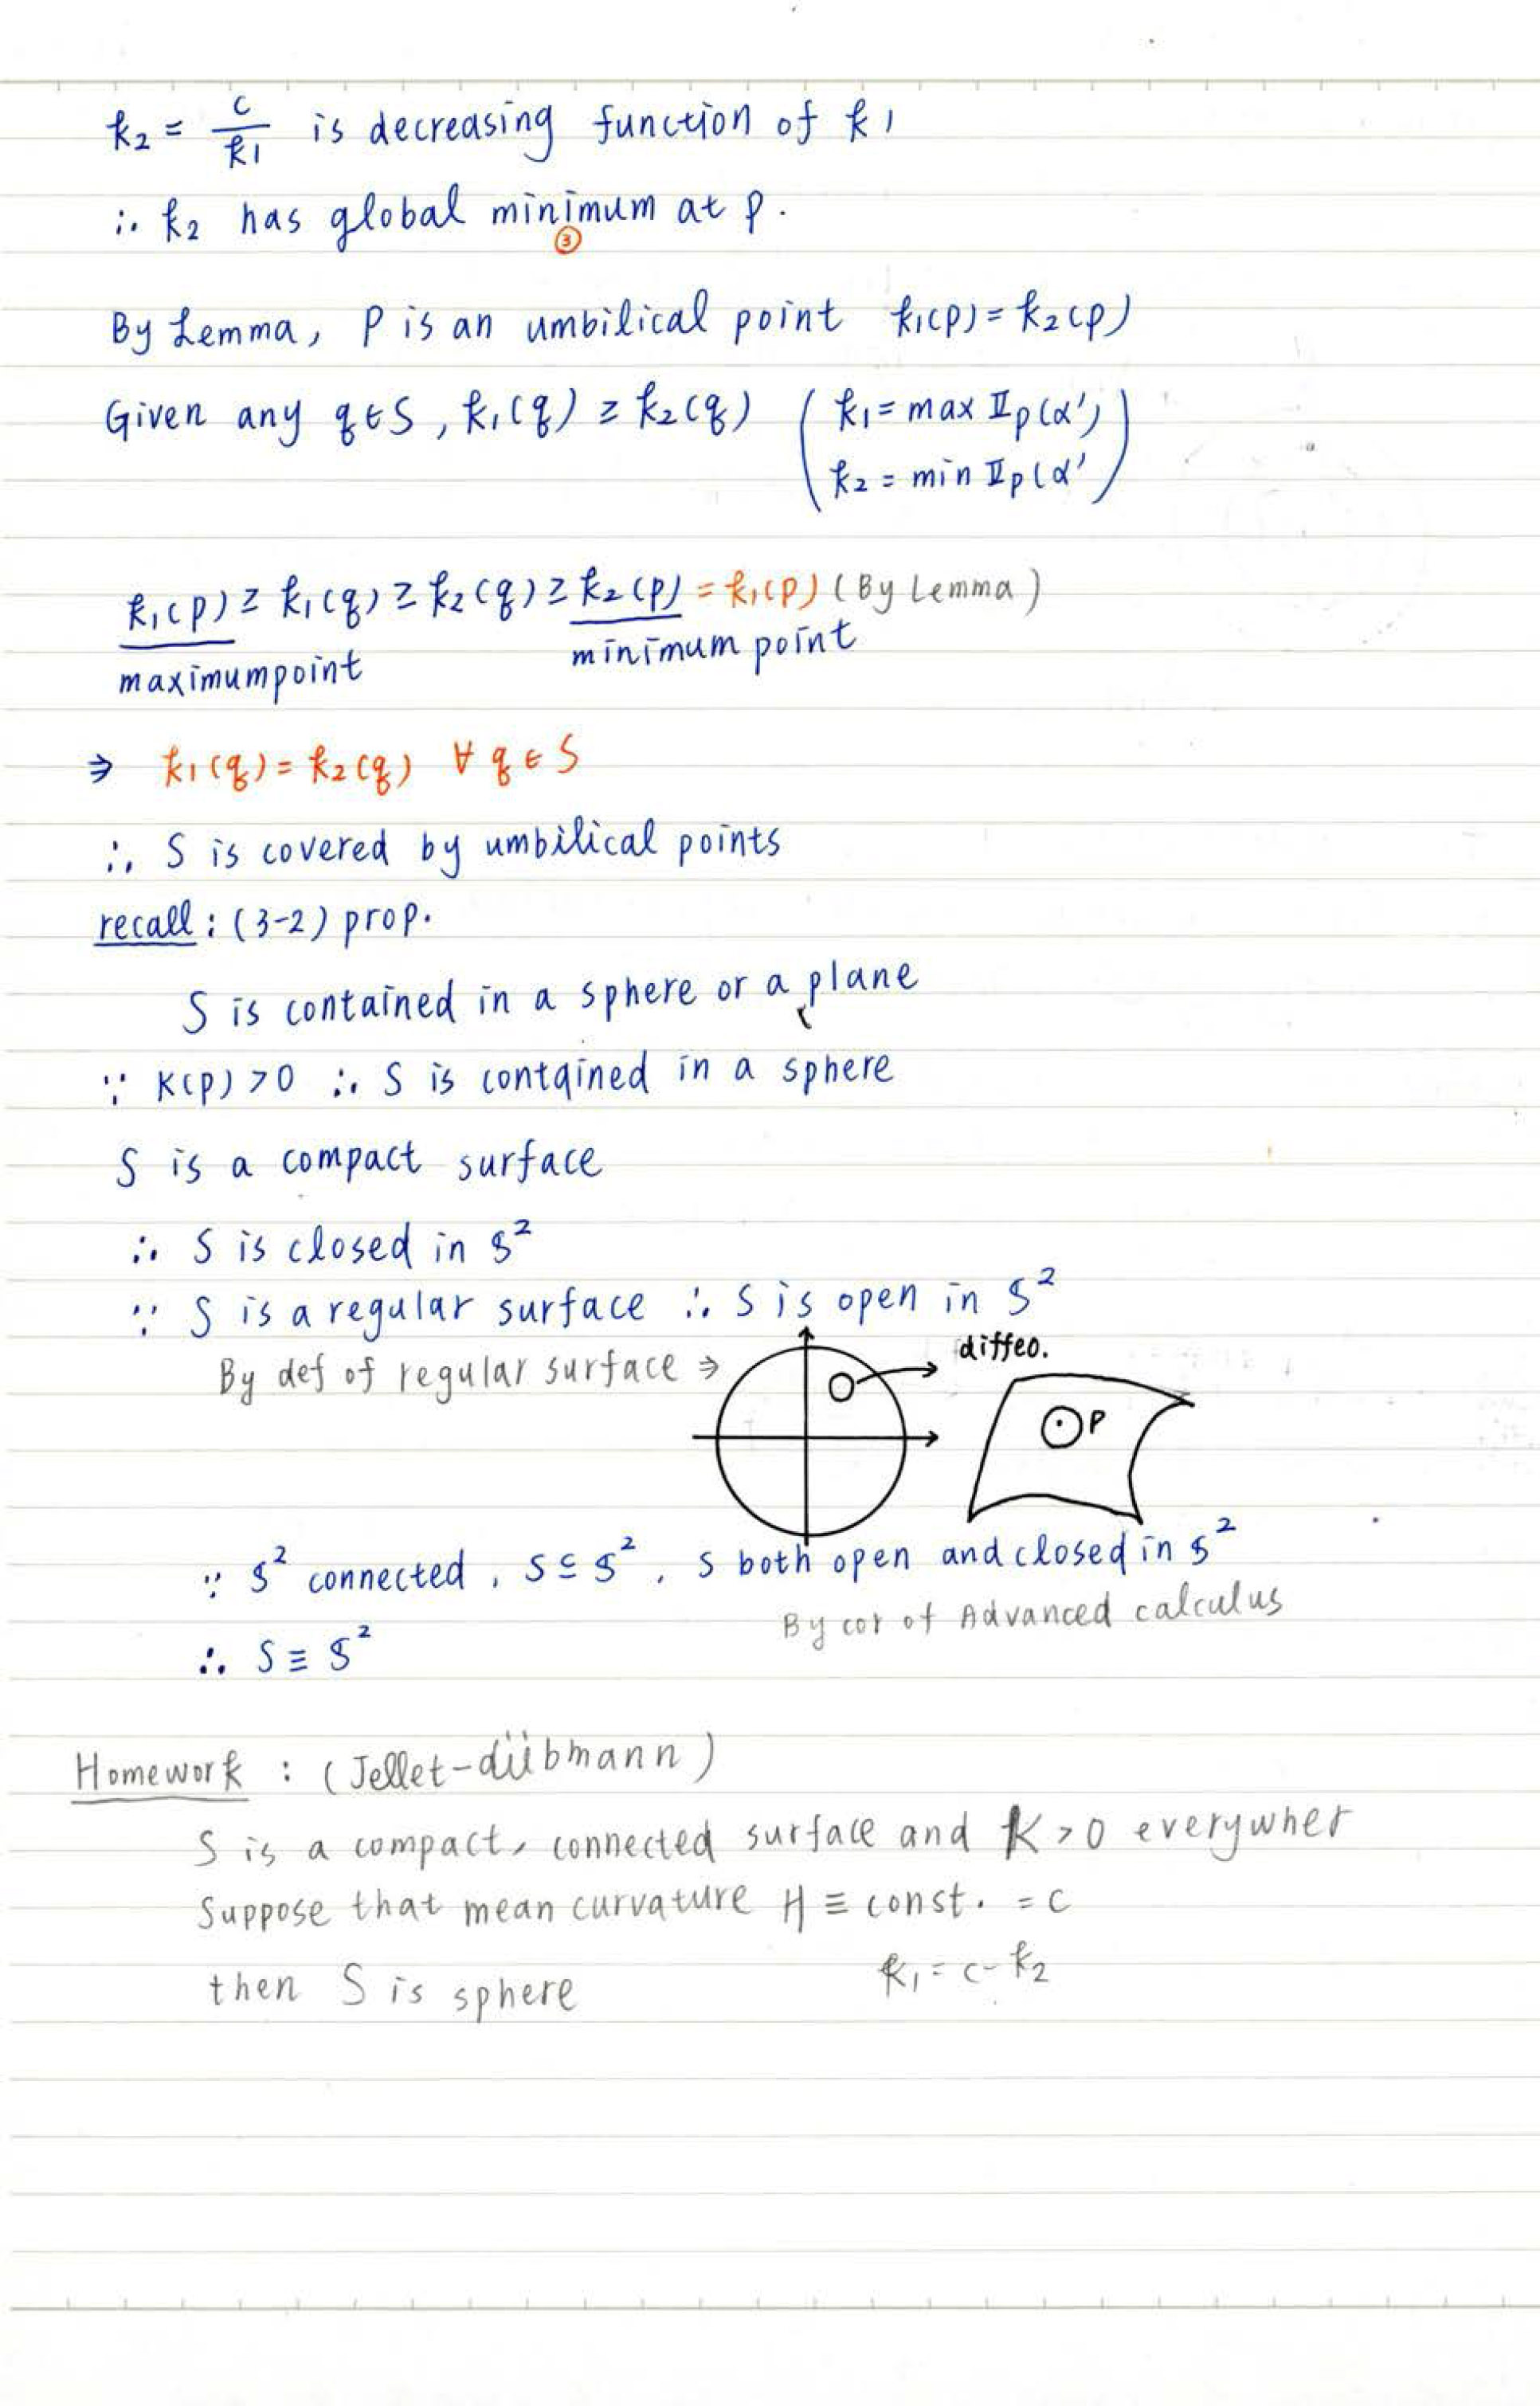 k₂ = c/k₁ is decreasing function of k₁
∴ k₂ has global minimum at p.
③
By Lemma, P is an umbilical point k₁(p) = k₂(p)
Given any q∈S, k₁(q) ≥ k₂(q) (k₁ = max Ⅱp(α')
k₂ = min Ⅱp(α'))
k₁(p) ≥ k₁(q) ≥ k₂(q) ≥ k₂(p) = k₁(p) (By Lemma)
maximum point minimum point
⇒ k₁(q) = k₂(q) ∀ q ∈ S
∴ S is covered by umbilical points
recall : (3-2) prop.
S is contained in a sphere or a plane
∵ K(p) > 0 ∴ S is contained in a sphere
S is a compact surface
∴ S is closed in 𝕊²
∵ S is a regular surface ∴ S is open in 𝕊²
By def of regular surface ⇒ diffeo.
P
∵ 𝕊² connected, S ⊆ 𝕊², S both open and closed in 𝕊²
By cor of Advanced calculus
∴ S ≡ 𝕊²
Homework : (Jellet-dübmann)
S is a compact, connected surface and K > 0 everywher
Suppose that mean curvature H ≡ const. = c
then S is sphere k₁ = c - k₂